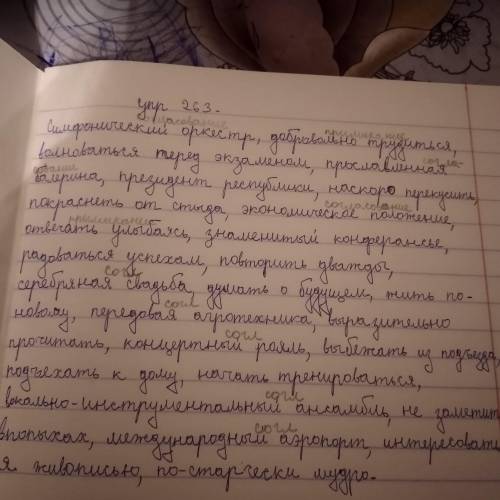 упр 263.
согласование
Симфонический оркестр, добровольно трудиться,
примыкание
волноваться перед экзаменом, прославленная
согла-
сование
балерина, президент республики, наскоро перекусить,
покраснеть от стыда, экономическое положение,
согласование
примыкание
отвечать улыбаясь, знаменитый конферансье,
радоваться успехам, повторить дважды,
согл
серебряная свадьба, думать о будущем, жить по-
согл
новому, передовая агротехника, выразительно
согл
прочитать, концертный рояль, выбежать из подъезда,
подъехать к дому, начать тренироваться,
согл
вокально-инструментальный ансамбль, не заметить
согл
впопыхах, международный аэропорт, интересовать
я живописью, по-старчески мудро.